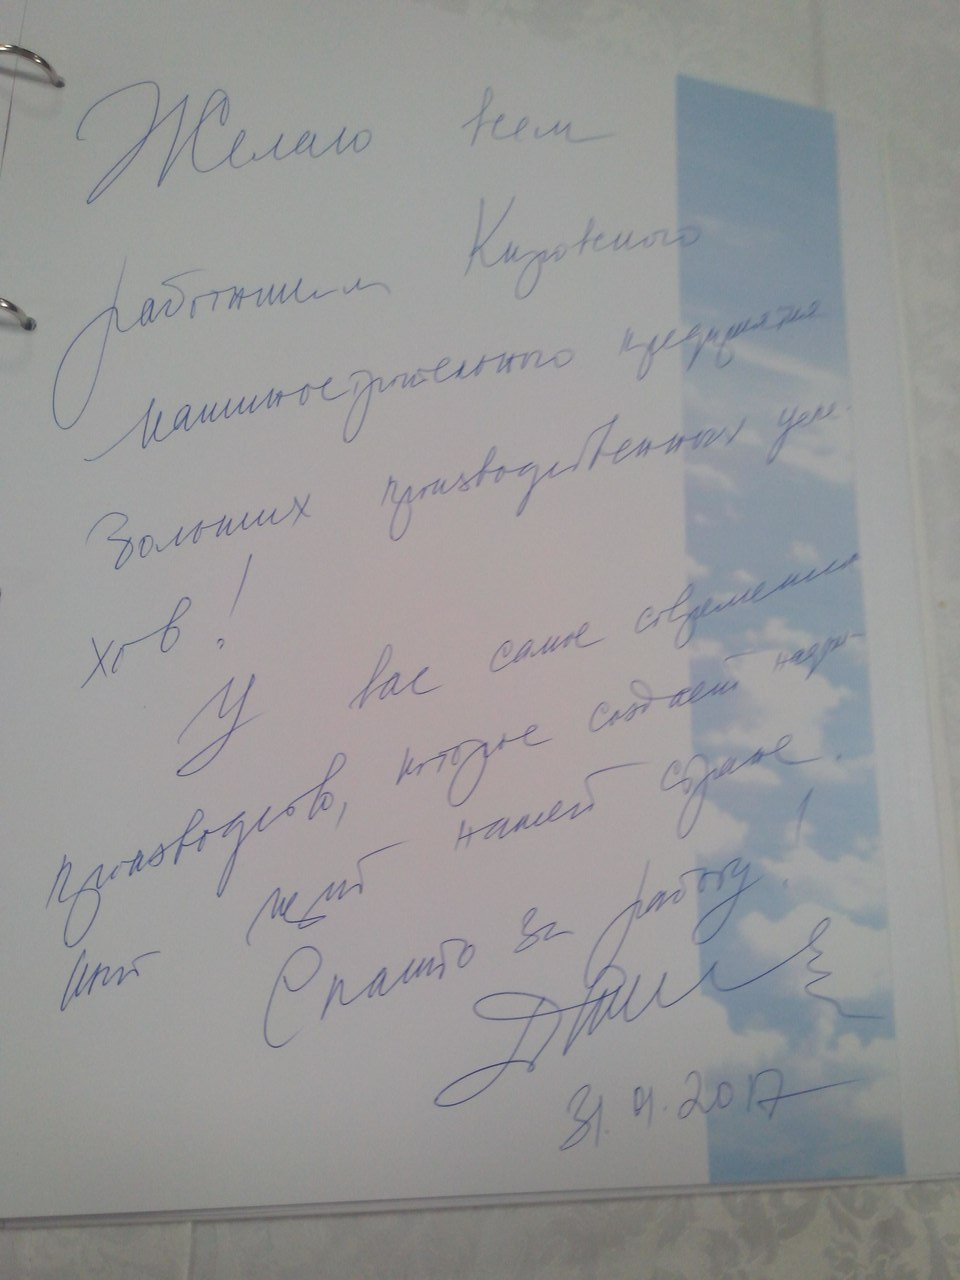 Желаю всем
работникам Кировского
машиностроительного предприятия
больших производственных успе-
хов!
У вас самое современное
производство, которое создает
щит нашей стране.
Спасибо за работу!
2017